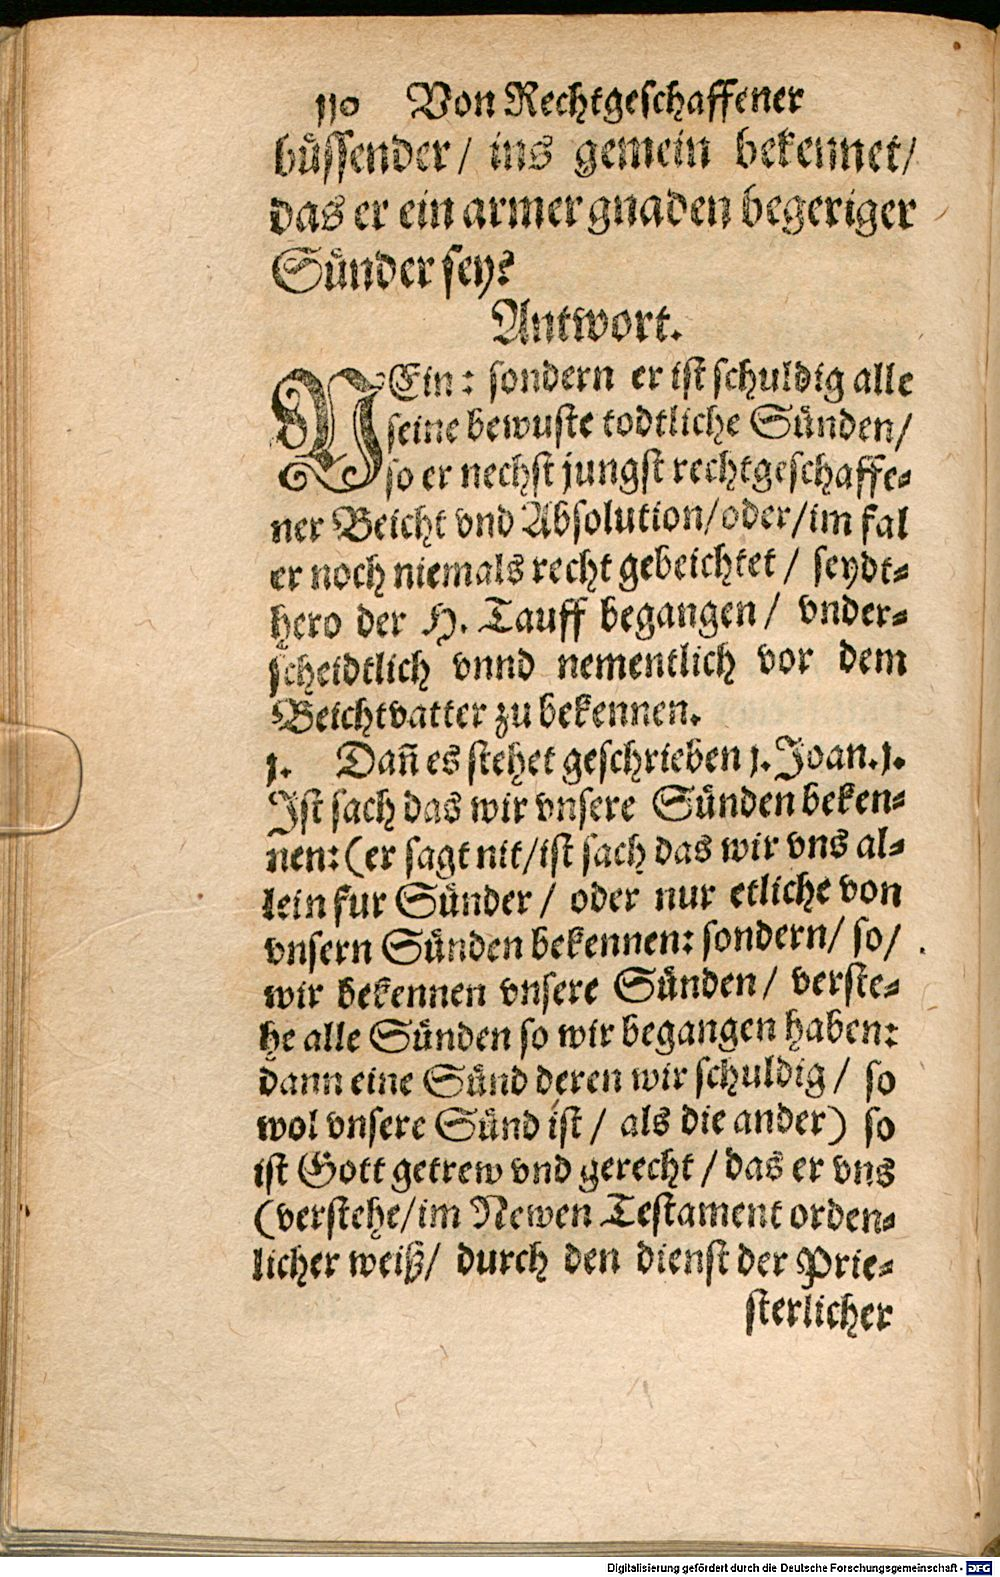 110 Von Rechtgeschaffener
büssender / ins gemein bekennet /
das er ein armer gnaden begeriger
Sünder sey?
Antwort.
NEin: sondern er ist schuldig alle
seine bewuste todtliche Sünden /
so er nechst jungst rechtgeschaffe-
ner Beicht vnd Absolution / oder / im fal
er noch niemals recht gebeichtet / seydt-
hero der H. Tauff begangen / vnder-
scheidtlich vnnd nementlich vor dem
Beichtvatter zu bekennen.
1. Dañ es stehet geschrieben 1. Joan. 1.
Ist sach das wir vnsere Sünden beken-
nen: (er sagt nit / ist sach das wir vns al-
lein fur Sünder / oder nur etliche von
vnsern Sünden bekennen: sondern / so /
wir bekennen vnsere Sünden / verste-
he alle Sünden so wir begangen haben:
dann eine Sünd deren wir schuldig / so
wol vnsere Sünd ist / als die ander) so
ist Gott getrew vnd gerecht / das er vns
(verstehe / im Newen Testament orden-
licher weiß / durch den dienst der Prie-
sterlicher
Digitalisierung gefördert durch die Deutsche Forschungsgemeinschaft - DFG